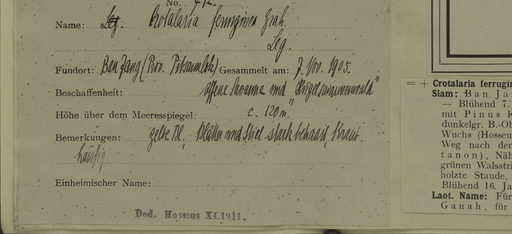 No.
Name: Crotalaria ferruginea Grah.
Leg
Fundort: Ban Jang (Prov. Pitsanulok) Gesammelt am: 7. Nov. 1905.
Beschaffenheit: offene Savanne und
Höhe über dem Meeresspiegel: c. 120 m.
Bemerkungen: gelbe Bl, Blätter und Stiel stark behaart, Kraut
häufig
Einheimischer Name:
Ded. Hosseus XI.1911.
= + Crotalaria ferrugin
Siam: Ban Ja
— Blühend 7.
mit Pinus K
dunkelgr. B.-Ob
Wuchs (Hosseu
Weg nach den
tanon), Näh
grünen Walsstri
holzte Staude,
Blühend 16. Ja
Laot. Name: Für
Ganah, für